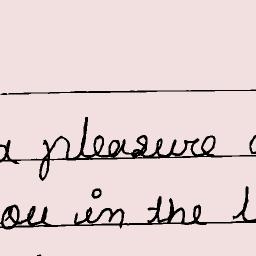 a pleasure
you in the